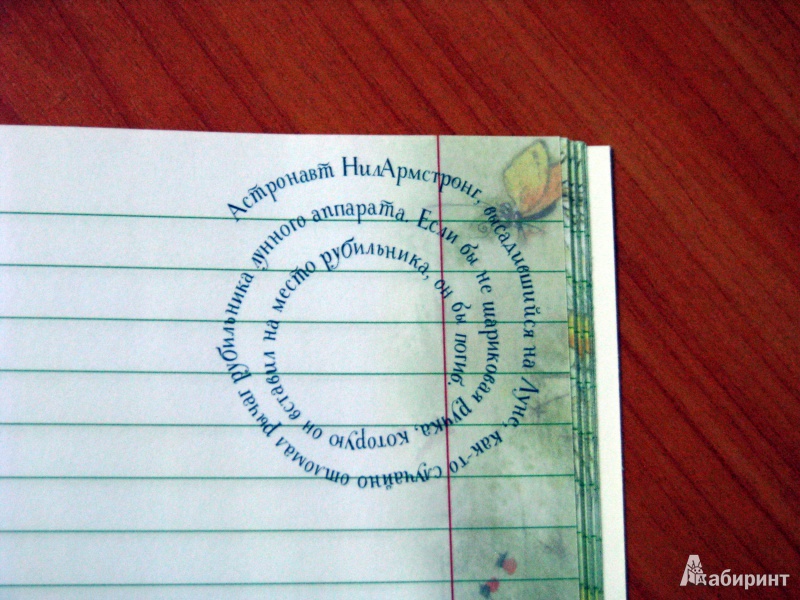 Астронавт НилАрмстронг, высадившийся на Луне, как-то случайно отломал рычаг рубильника лунного аппарата. Если бы не шариковая ручка, которую он вставил на место рубильника, он бы погиб.
Лабиринт